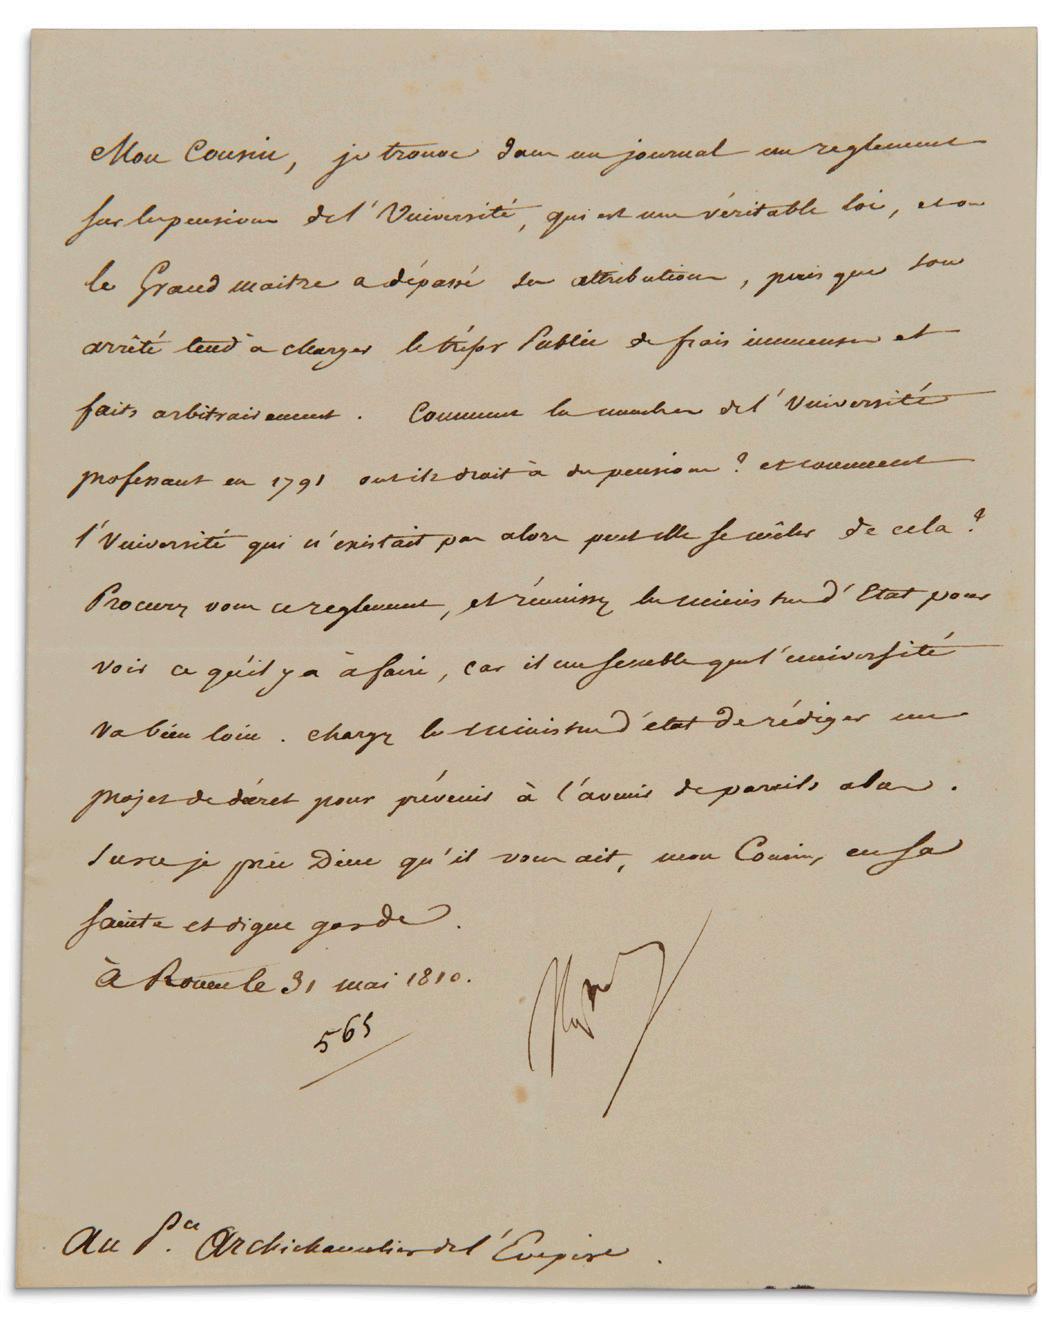 Mon Cousin, je trouve dans un journal un reglement
sur les pensions de l'Université, qui est une véritable loi, et où
le Grand maitre a dépassé ses attributions, puis que son
arrêté tend à charger le trésor Public de frais immenses et
faits arbitrairement. Comment les membres de l'Université
professant en 1791 ont ils droit à des pensions ? et comment
l'Université qui n'existait pas alors peut elle se mêler de cela ?
Procurez vous ce reglement, et réunissez les ministres d'Etat pour
voir ce qu'il y a à faire, car il me semble que l'université
va bien loin. chargez les ministres d'état de rédiger un
projet de décret pour prévenir à l'avenir de pareils abus.
Sur ce je prie Dieu qu'il vous ait, mon Cousin, en sa
sainte et digne garde.
à Rouen le 31 mai 1810.
Nap
565
Au P.ce Archichancelier de l'Empire.